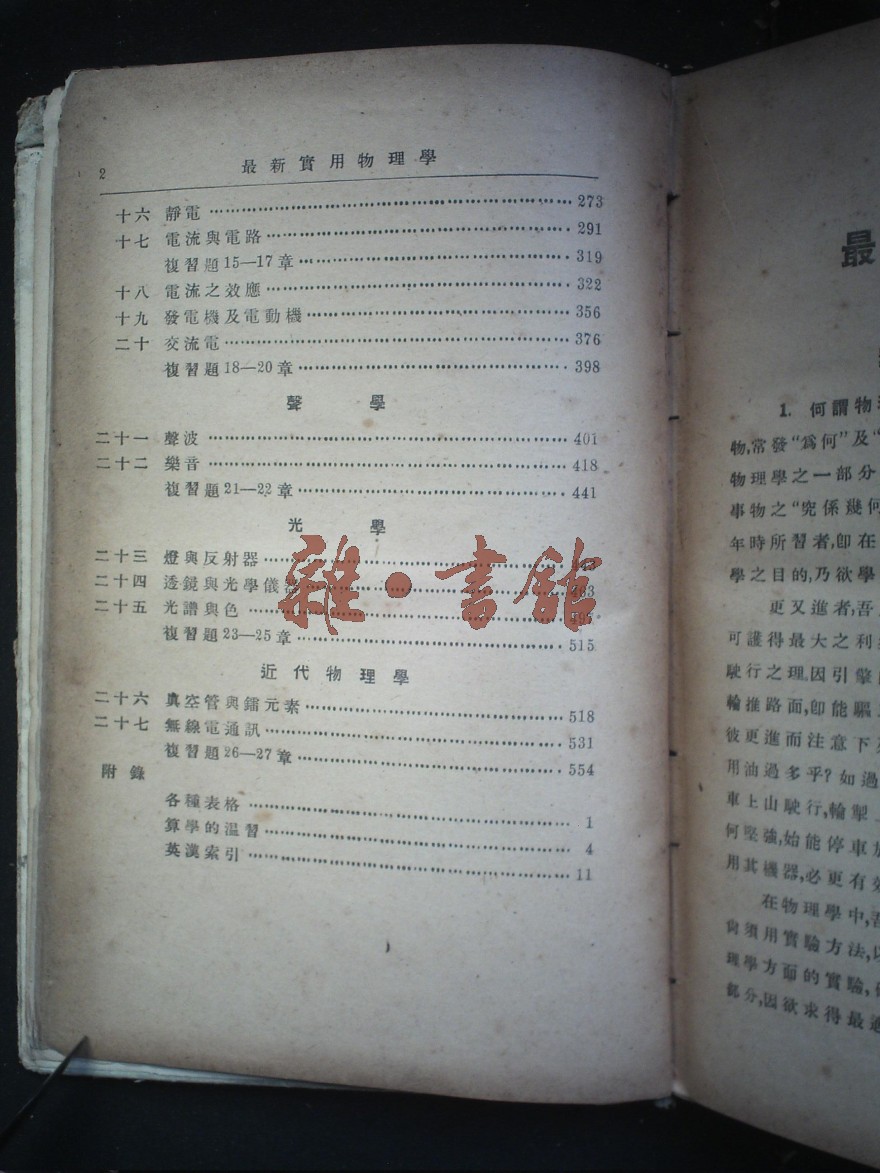 2 最新實用物理學
十六 靜電 273
十七 電流與電路 291
複習題15—17章 319
十八 電流之效應 322
十九 發電機及電動機 356
二十 交流電 376
複習題18—20章 398
聲 學
二十一 聲波 401
二十二 樂音 418
複習題21—22章 441
光 學
二十三 燈與反射器
二十四 透鏡與光學儀器
二十五 光譜與色
複習題23—25章 515
近代物理學
二十六 真空管與鐳元素 518
二十七 無線電通訊 531
複習題26—27章 554
附錄
各種表格 1
算學的溫習 4
英漢索引 11
雜·書館
最
1. 何謂物
物,常發“爲何”及“
物理學之一部分
事物之“究係幾何
年時所習者,卽在
學之目的,乃欲學
更又進者,吾
可護得最大之利
駛行之理,因引擎
輪推路面,卽能驅
彼更進而注意下
用油過多乎?如過
車上山駛行,輪掣
何堅強,始能停車
用其機器,必更有效
在物理學中,吾
尙須用實驗方法,以
理學方面的實驗,
部分,因欲求得最進